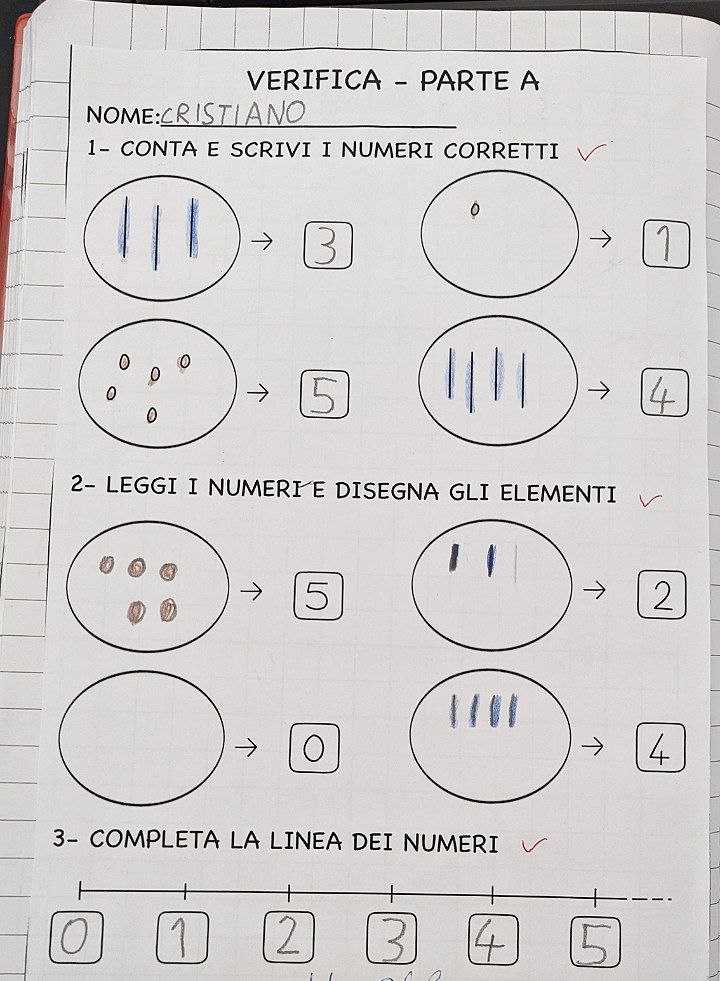 VERIFICA - PARTE A
NOME: CRISTIANO
1- CONTA E SCRIVI I NUMERI CORRETTI
→ 3 → 1
→ 5 → 4
2- LEGGI I NUMERI E DISEGNA GLI ELEMENTI
→ 5 → 2
→ 0 → 4
3- COMPLETA LA LINEA DEI NUMERI
0 1 2 3 4 5